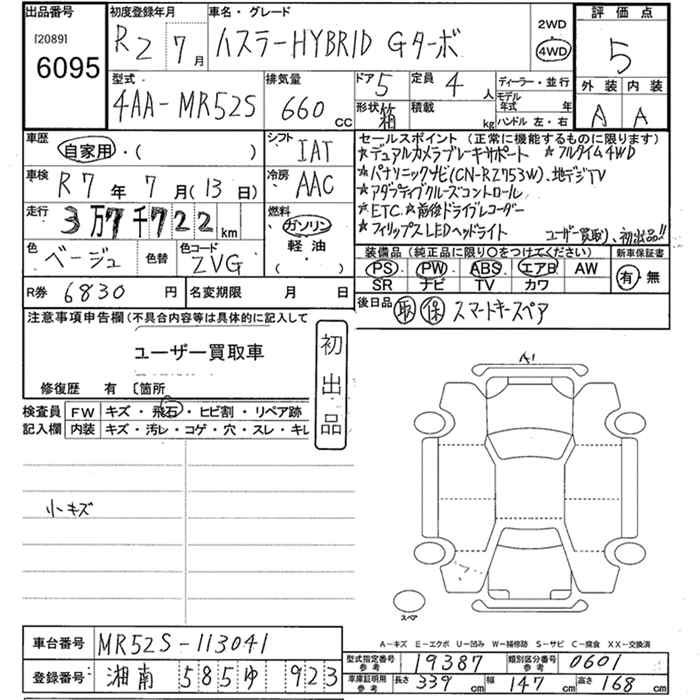 出品番号 初度登録年月 車名・グレード 評価点
[2089] 6095 R2 7月 ハスラーHYBRID Gターボ 2WD 4WD 5
型式 排気量 ドア 定員 ディーラー・並行 外装 内装
4AA-MR52S 660cc 5 4人 モデル年式 年 A A
形状 箱 積載 kg ハンドル 左・右
車歴 自家用・( ) シフト IAT
車検 R7年7月(13日) 冷房 AAC
走行 3万7千722km 燃料 ガソリン 軽油・( )
色 ベージュ 色替 色コード ZVG
R券 6830円 名変期限 月 日
セールスポイント(正常に機能するものに限ります)
★デュアルカメラブレーキサポート ★フルタイム4WD
★パナソニックナビ(CN-RZ753W)、地デジTV
★アダプティブクルーズコントロール
★ETC ★前後ドライブレコーダー
★フィリップスLEDヘッドライト ユーザー買取り、初出品!!
装備品(純正品に限り〇をつけてください) 新車保証書
PS PW ABS エアB AW 有・無
SR ナビ TV カワ
後日品 取 保 スマートキースペア
注意事項申告欄(不具合内容等は具体的に記入して
ユーザー買取車
初出品
修復歴 有 〔箇所
検査員記入欄 FW キズ・飛石・ヒビ割・リペア跡
内装 キズ・汚レ・コゲ・穴・スレ・キレ
小キズ
A1
スペア
A-キズ E-エクボ U-凹み W-補修跡 S-サビ C-腐食 XX-交換済
車台番号 MR52S-113041
登録番号 湘南 585 ゆ 923
型式指定番号 参考 19387 類別区分番号 参考 0601
車庫証明用 参考 長さ 339cm 幅 147cm 高さ 168cm